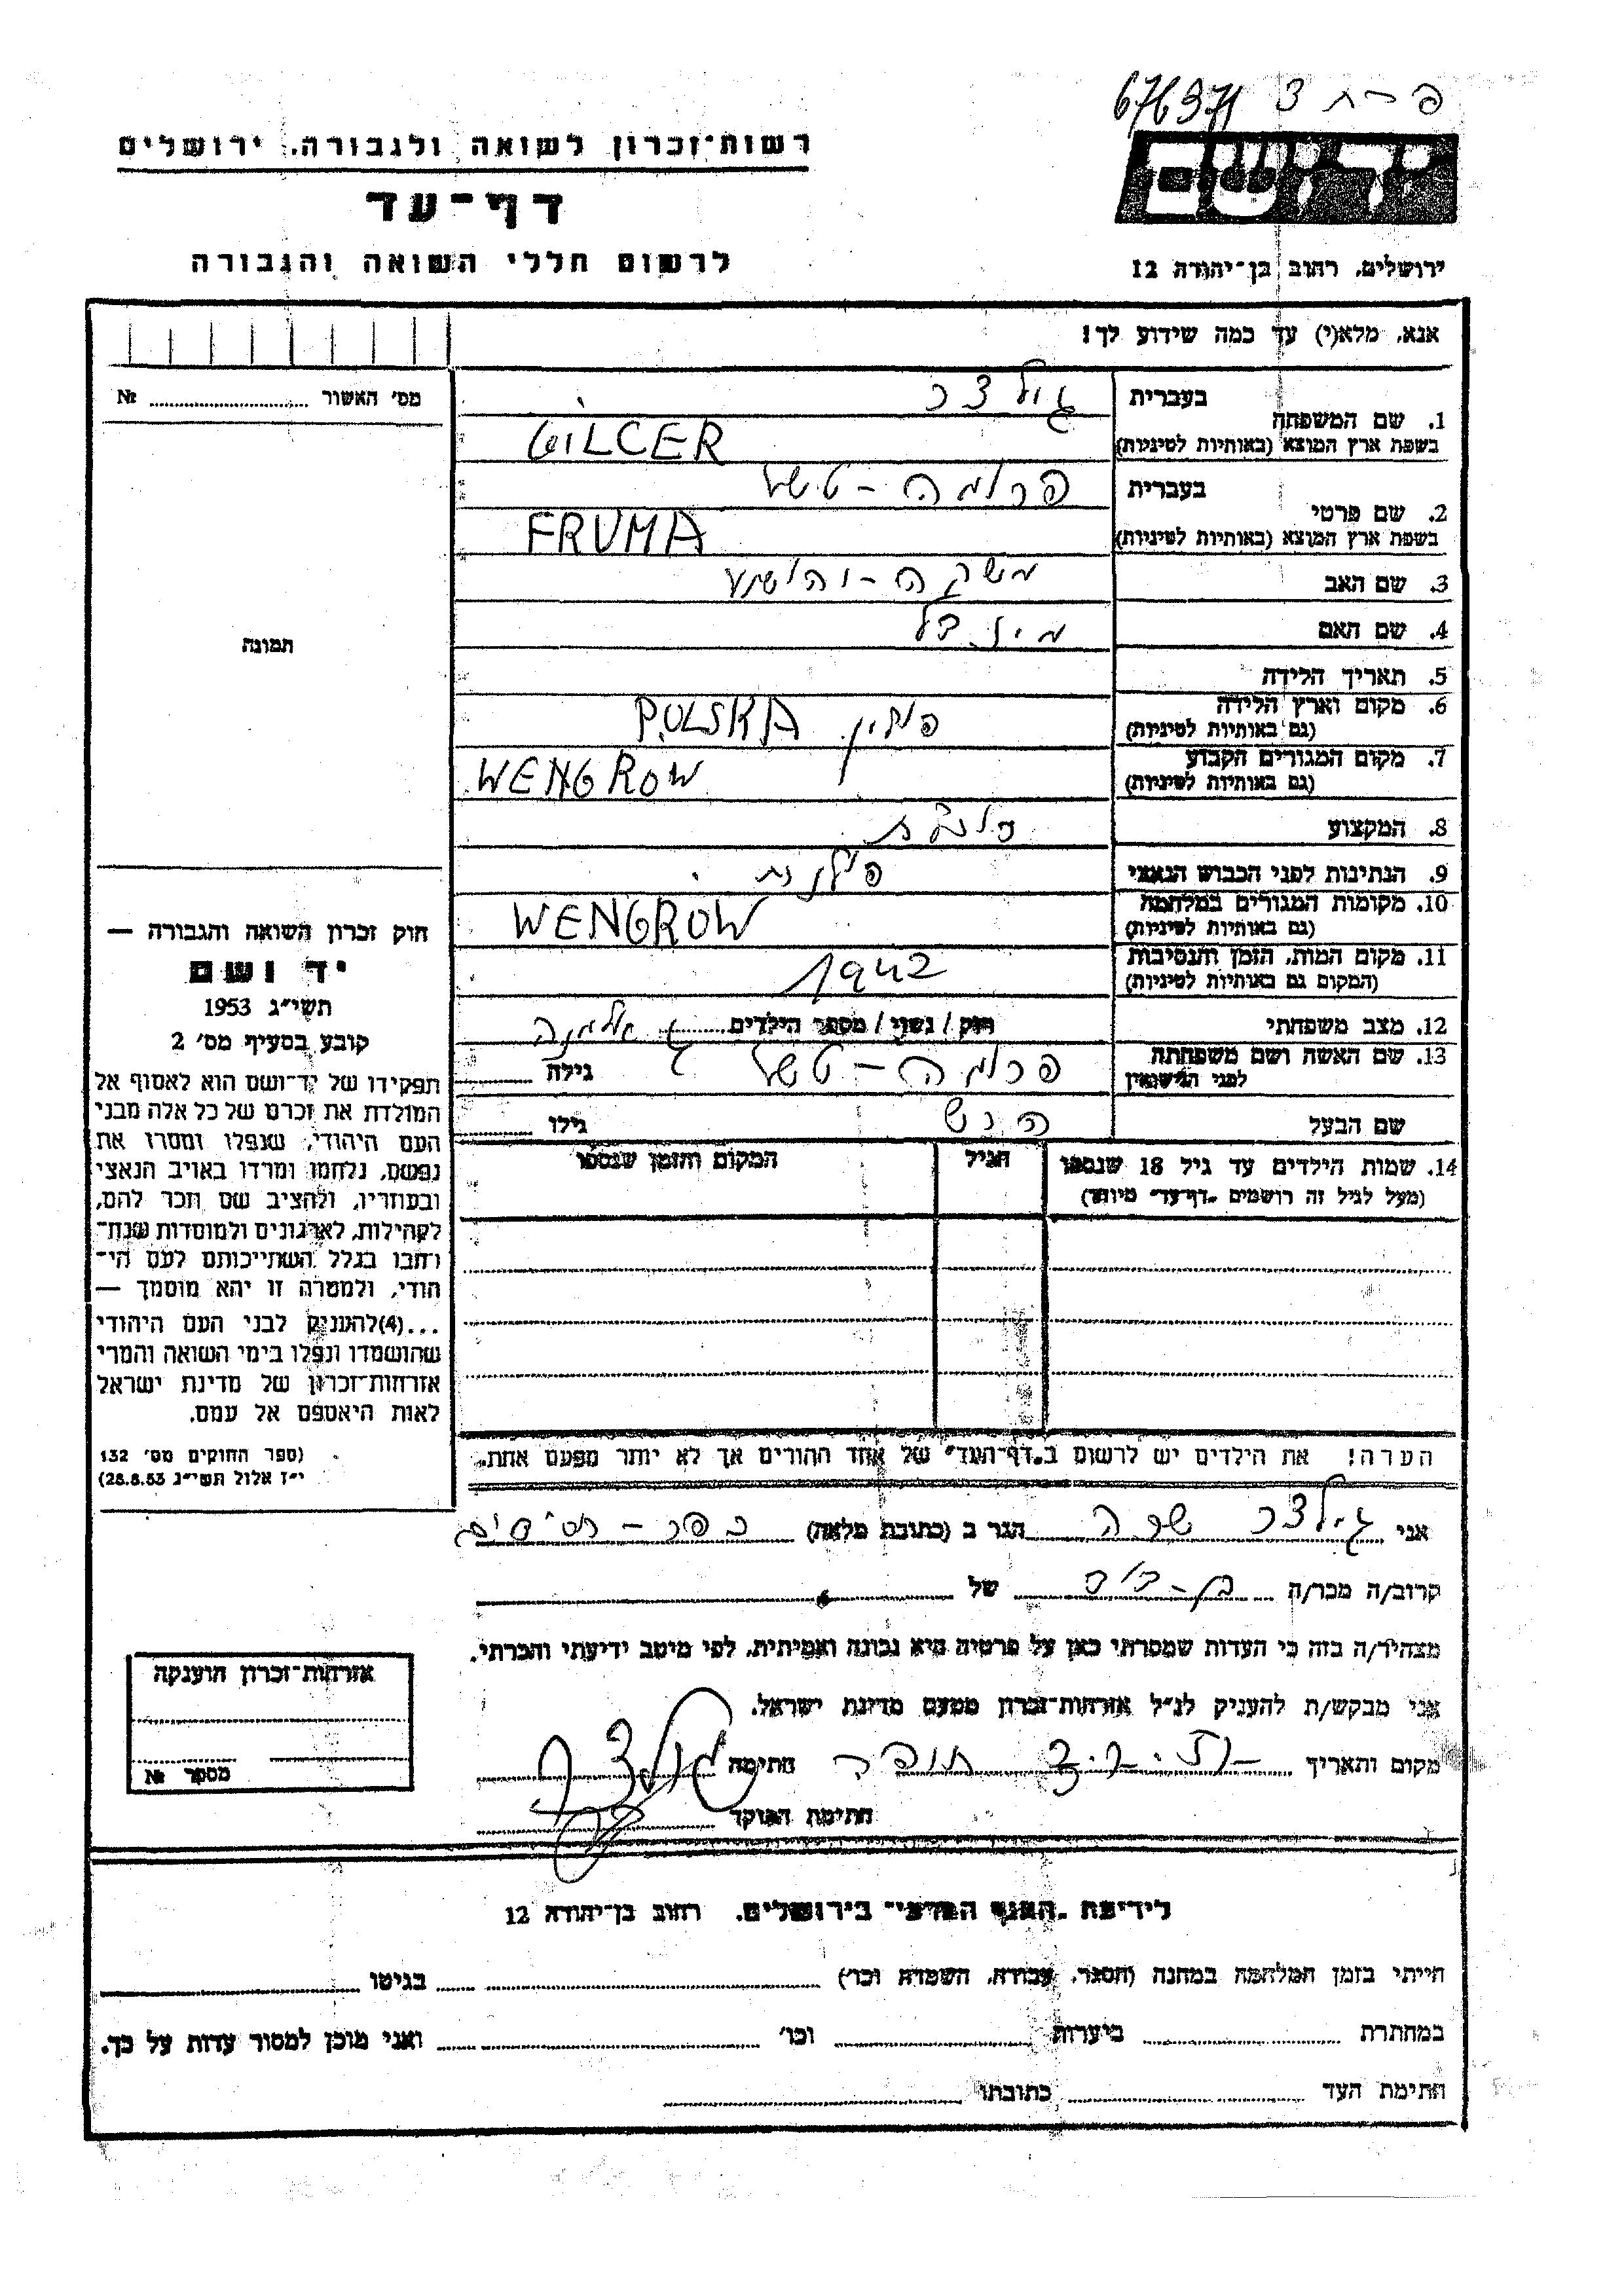 676371
רשות־זכרון לשואה ולגבורה, ירושלים
דף־עד
לרשום חללי השואה והגבורה
יד ושם
ירושלים, רחוב בן־יהודה 12
אנא, מלא(י) עד כמה שידוע לך!
מס' האשור № 
תמונה
בעברית גילצר
1. שם המשפחה
בשפת ארץ המוצא (באותיות לטיניות) GILCER
בעברית פרומה -
2. שם פרטי
בשפת ארץ המוצא (באותיות לטיניות) FRUMA
3. שם האב
4. שם האם
5. תאריך הלידה
6. מקום וארץ הלידה פולין POLSKA
(גם באותיות לטיניות)
7. מקום המגורים הקבוע WENGROW
(גם באותיות לטיניות)
8. המקצוע
9. הנתינות לפני הכבוש הנאצי פולנית
10. מקומות המגורים במלחמה WENGROW
(גם באותיות לטיניות)
11. מקום המות, הזמן והנסיבות 1942
(המקום גם באותיות לטיניות)
12. מצב משפחתי רווק / נשוי / מספר הילדים אלמנה
13. שם האשה ושם משפחתה פרומה - גילה
לפני הנישואין
שם הבעל הרש גילו
14. שמות הילדים עד גיל 18 שנספו הגיל המקום והזמן שנספו
(מעל לגיל זה רושמים "דף־עד" מיוחד)
הערה! את הילדים יש לרשום ב"דף־העד" של אחד ההורים אך לא יותר מפעם אחת.
חוק זכרון השואה והגבורה —
יד ושם
תשי"ג 1953
קובע בסעיף מס' 2
תפקידו של יד־ושם הוא לאסוף אל
המולדת את זכרם של כל אלה מבני
העם היהודי, שנפלו ומסרו את
נפשם, נלחמו ומרדו באויב הנאצי
ובעוזריו, ולהציב שם וזכר להם,
לקהילות, לארגונים ולמוסדות שנח־
רבו בגלל השתייכותם לעם הי־
הודי, ולמטרה זו יהא מוסמך —
...(4)להעניק לבני העם היהודי
שהושמדו ונפלו בימי השואה והמרי
אזרחות־זכרון של מדינת ישראל
לאות היאספם אל עמם.
(ספר החוקים מס' 132
י"ז אלול תשי"ג 28.8.53)
אני גילצר שרה הגר ב (כתובת מלאה) כפר - חסידים
קרוב/ה מכר/ה של
מצהיר/ה בזה כי העדות שמסרתי כאן על פרטיה היא נכונה ואמיתית, לפי מיטב ידיעתי והכרתי.
אני מבקש/ת להעניק לנ"ל אזרחות־זכרון מטעם מדינת ישראל.
מקום ותאריך חתימה
חתימת הפוקד
אזרחות־זכרון הוענקה
מספר №
לידיעת "הגנזך המדעי" בירושלים, רחוב בן־יהודה 12
הייתי בזמן המלחמה במחנה (הסגר, עבודה, השמדה וכו') בגיטו
במחתרת ביערות וכו' ואני מוכן למסור עדות על כך.
חתימת העד כתובתו